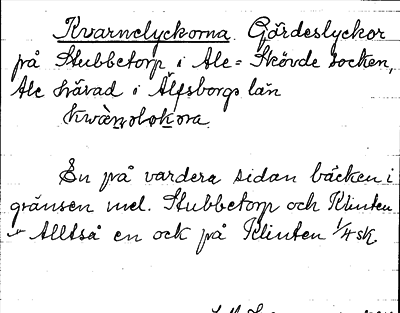 Kvarnelyckorna. Gärdeslyckor
på Stubbetorp i Ale=Skövde socken,
Ale härad i Älfsborgs län
En på vardera sidan bäcken i
gränsen mel. Stubbetorp och Klinten
Alltså en ock på Klinten 1/4 sk.